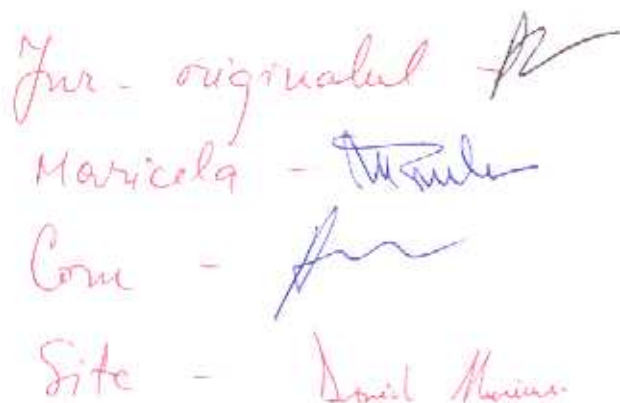 Jur - originalul -
Maricela -
Com -
Site - David Marius